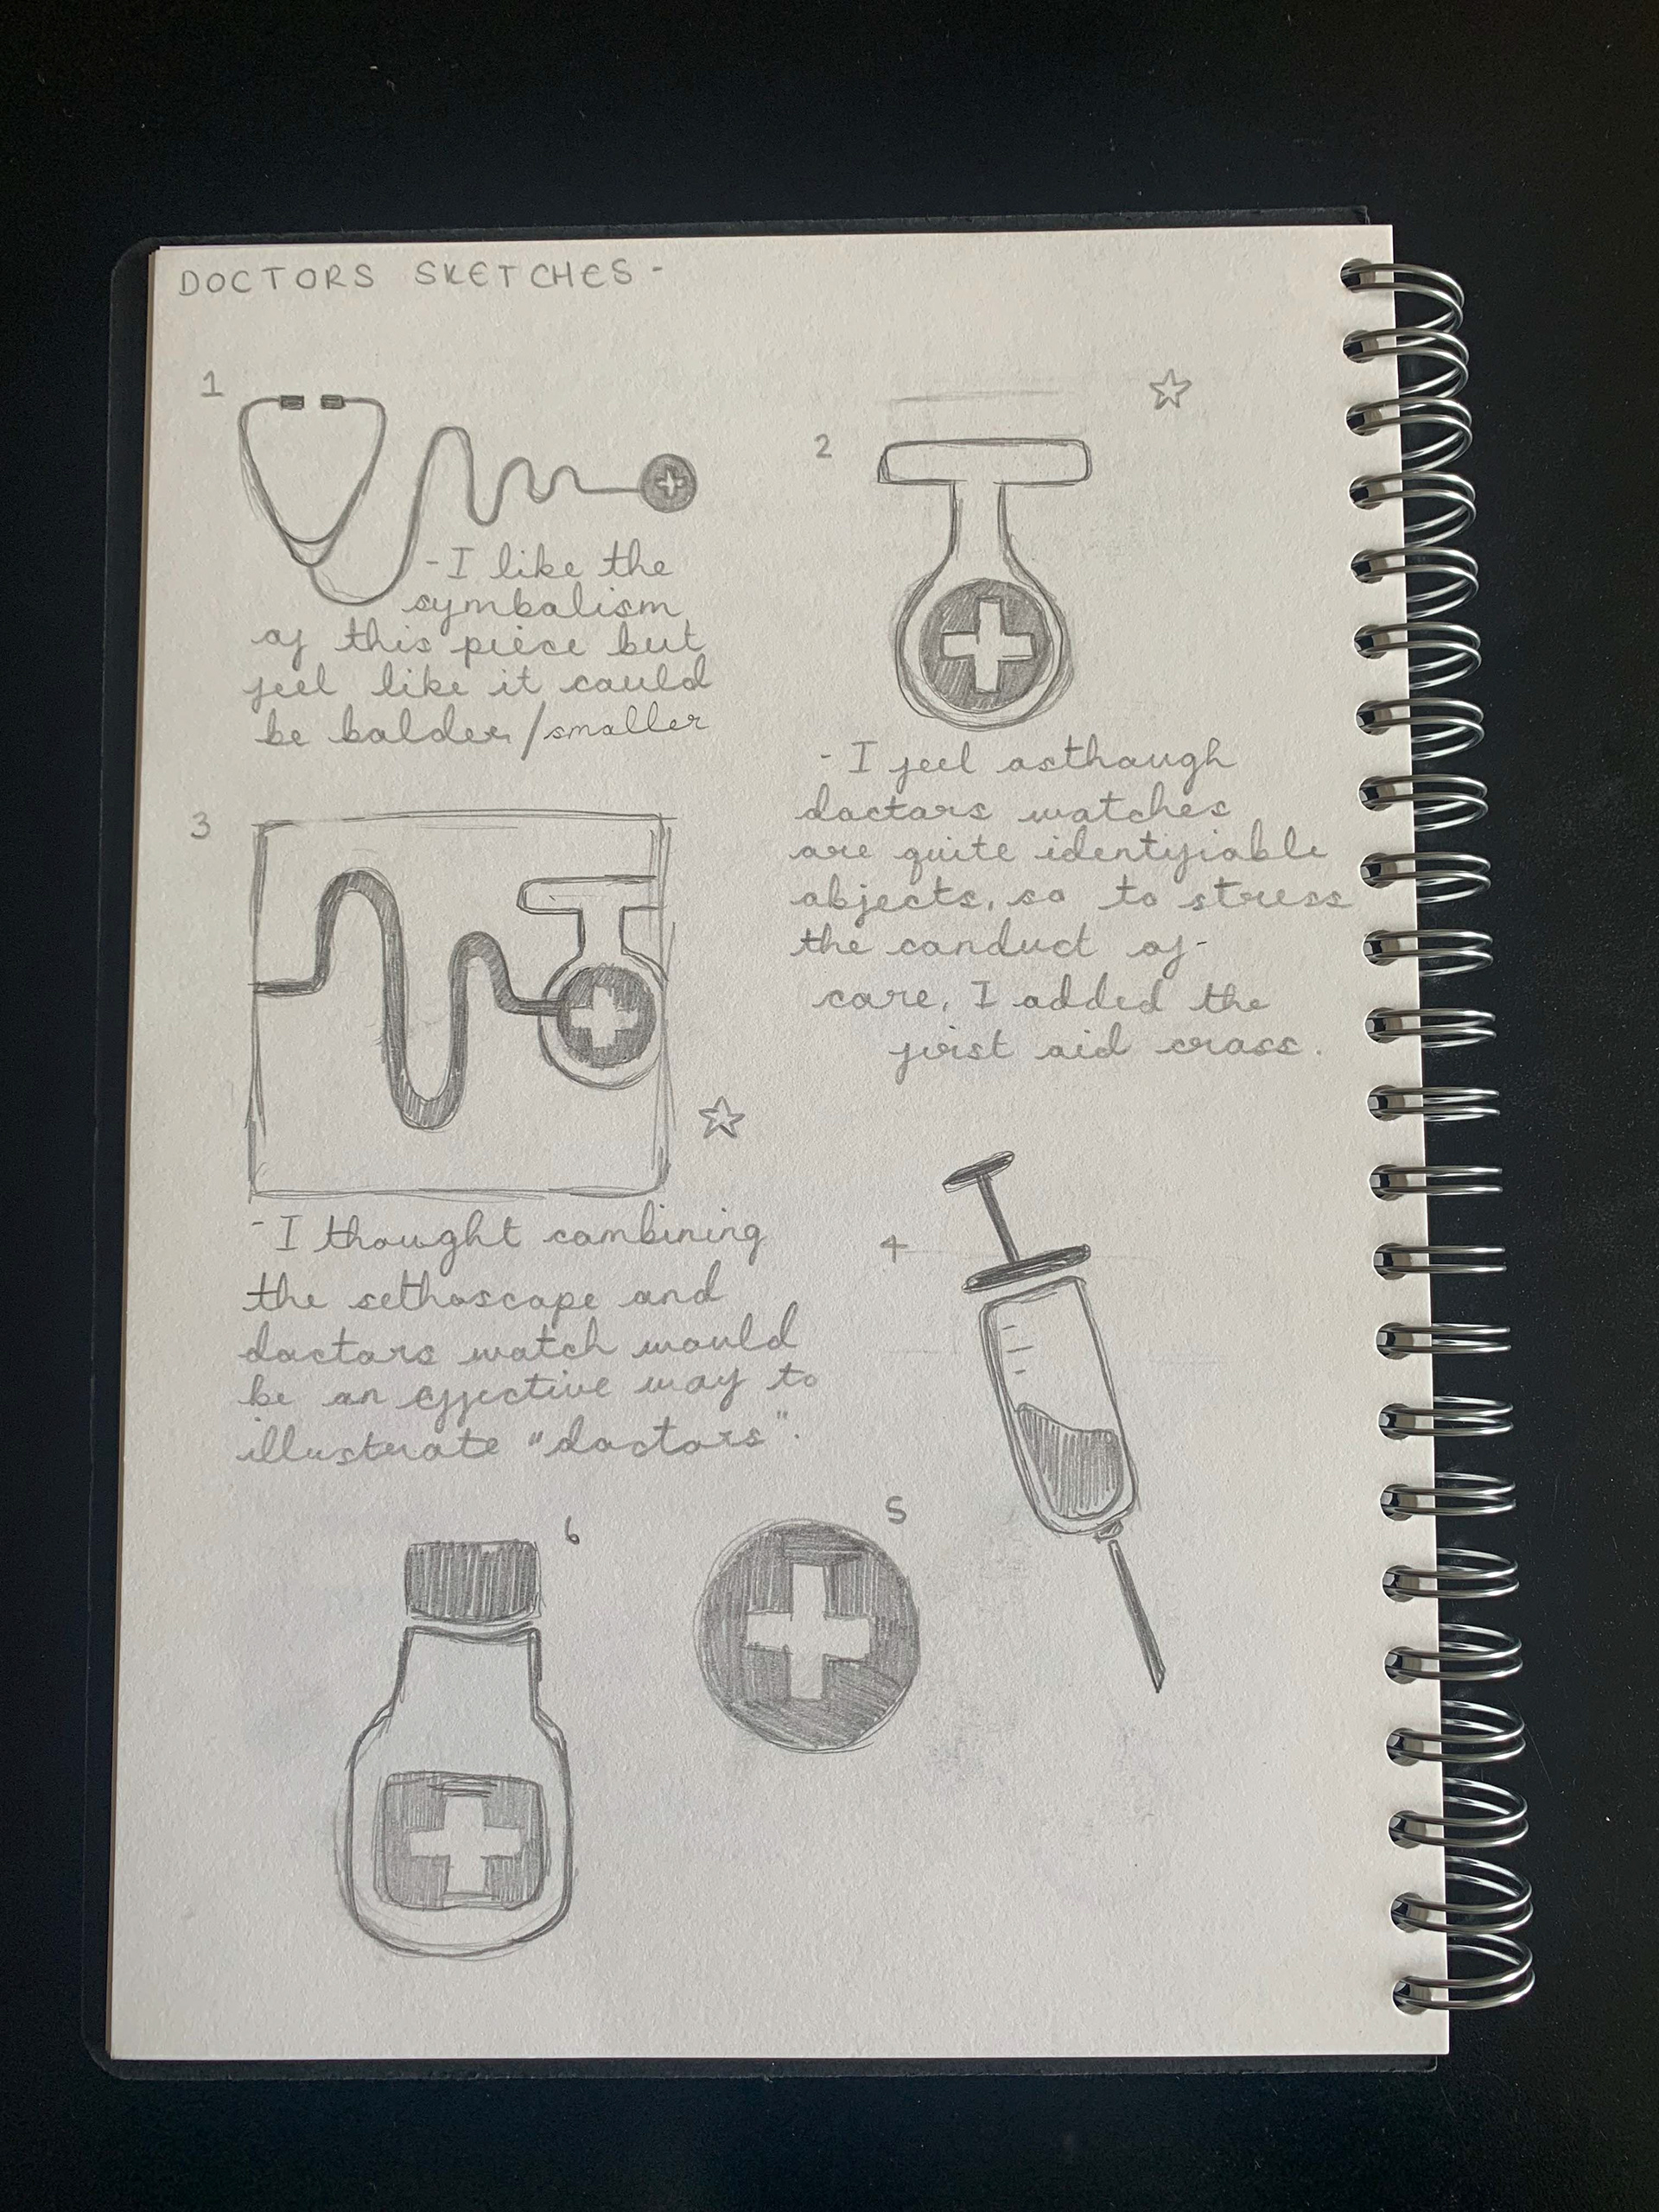 DOCTORS SKETCHES -
1
- I like the
symbolism
of this piece but
feel like it could
be bolder/smaller
2
- I feel asthough
doctors watches
are quite identifiable
objects, so to stress
the conduct of
care, I added the
first aid cross.
3
- I thought combining
the sethoscope and
doctors watch would
be an effective way to
illustrate "doctors".
4
5
6